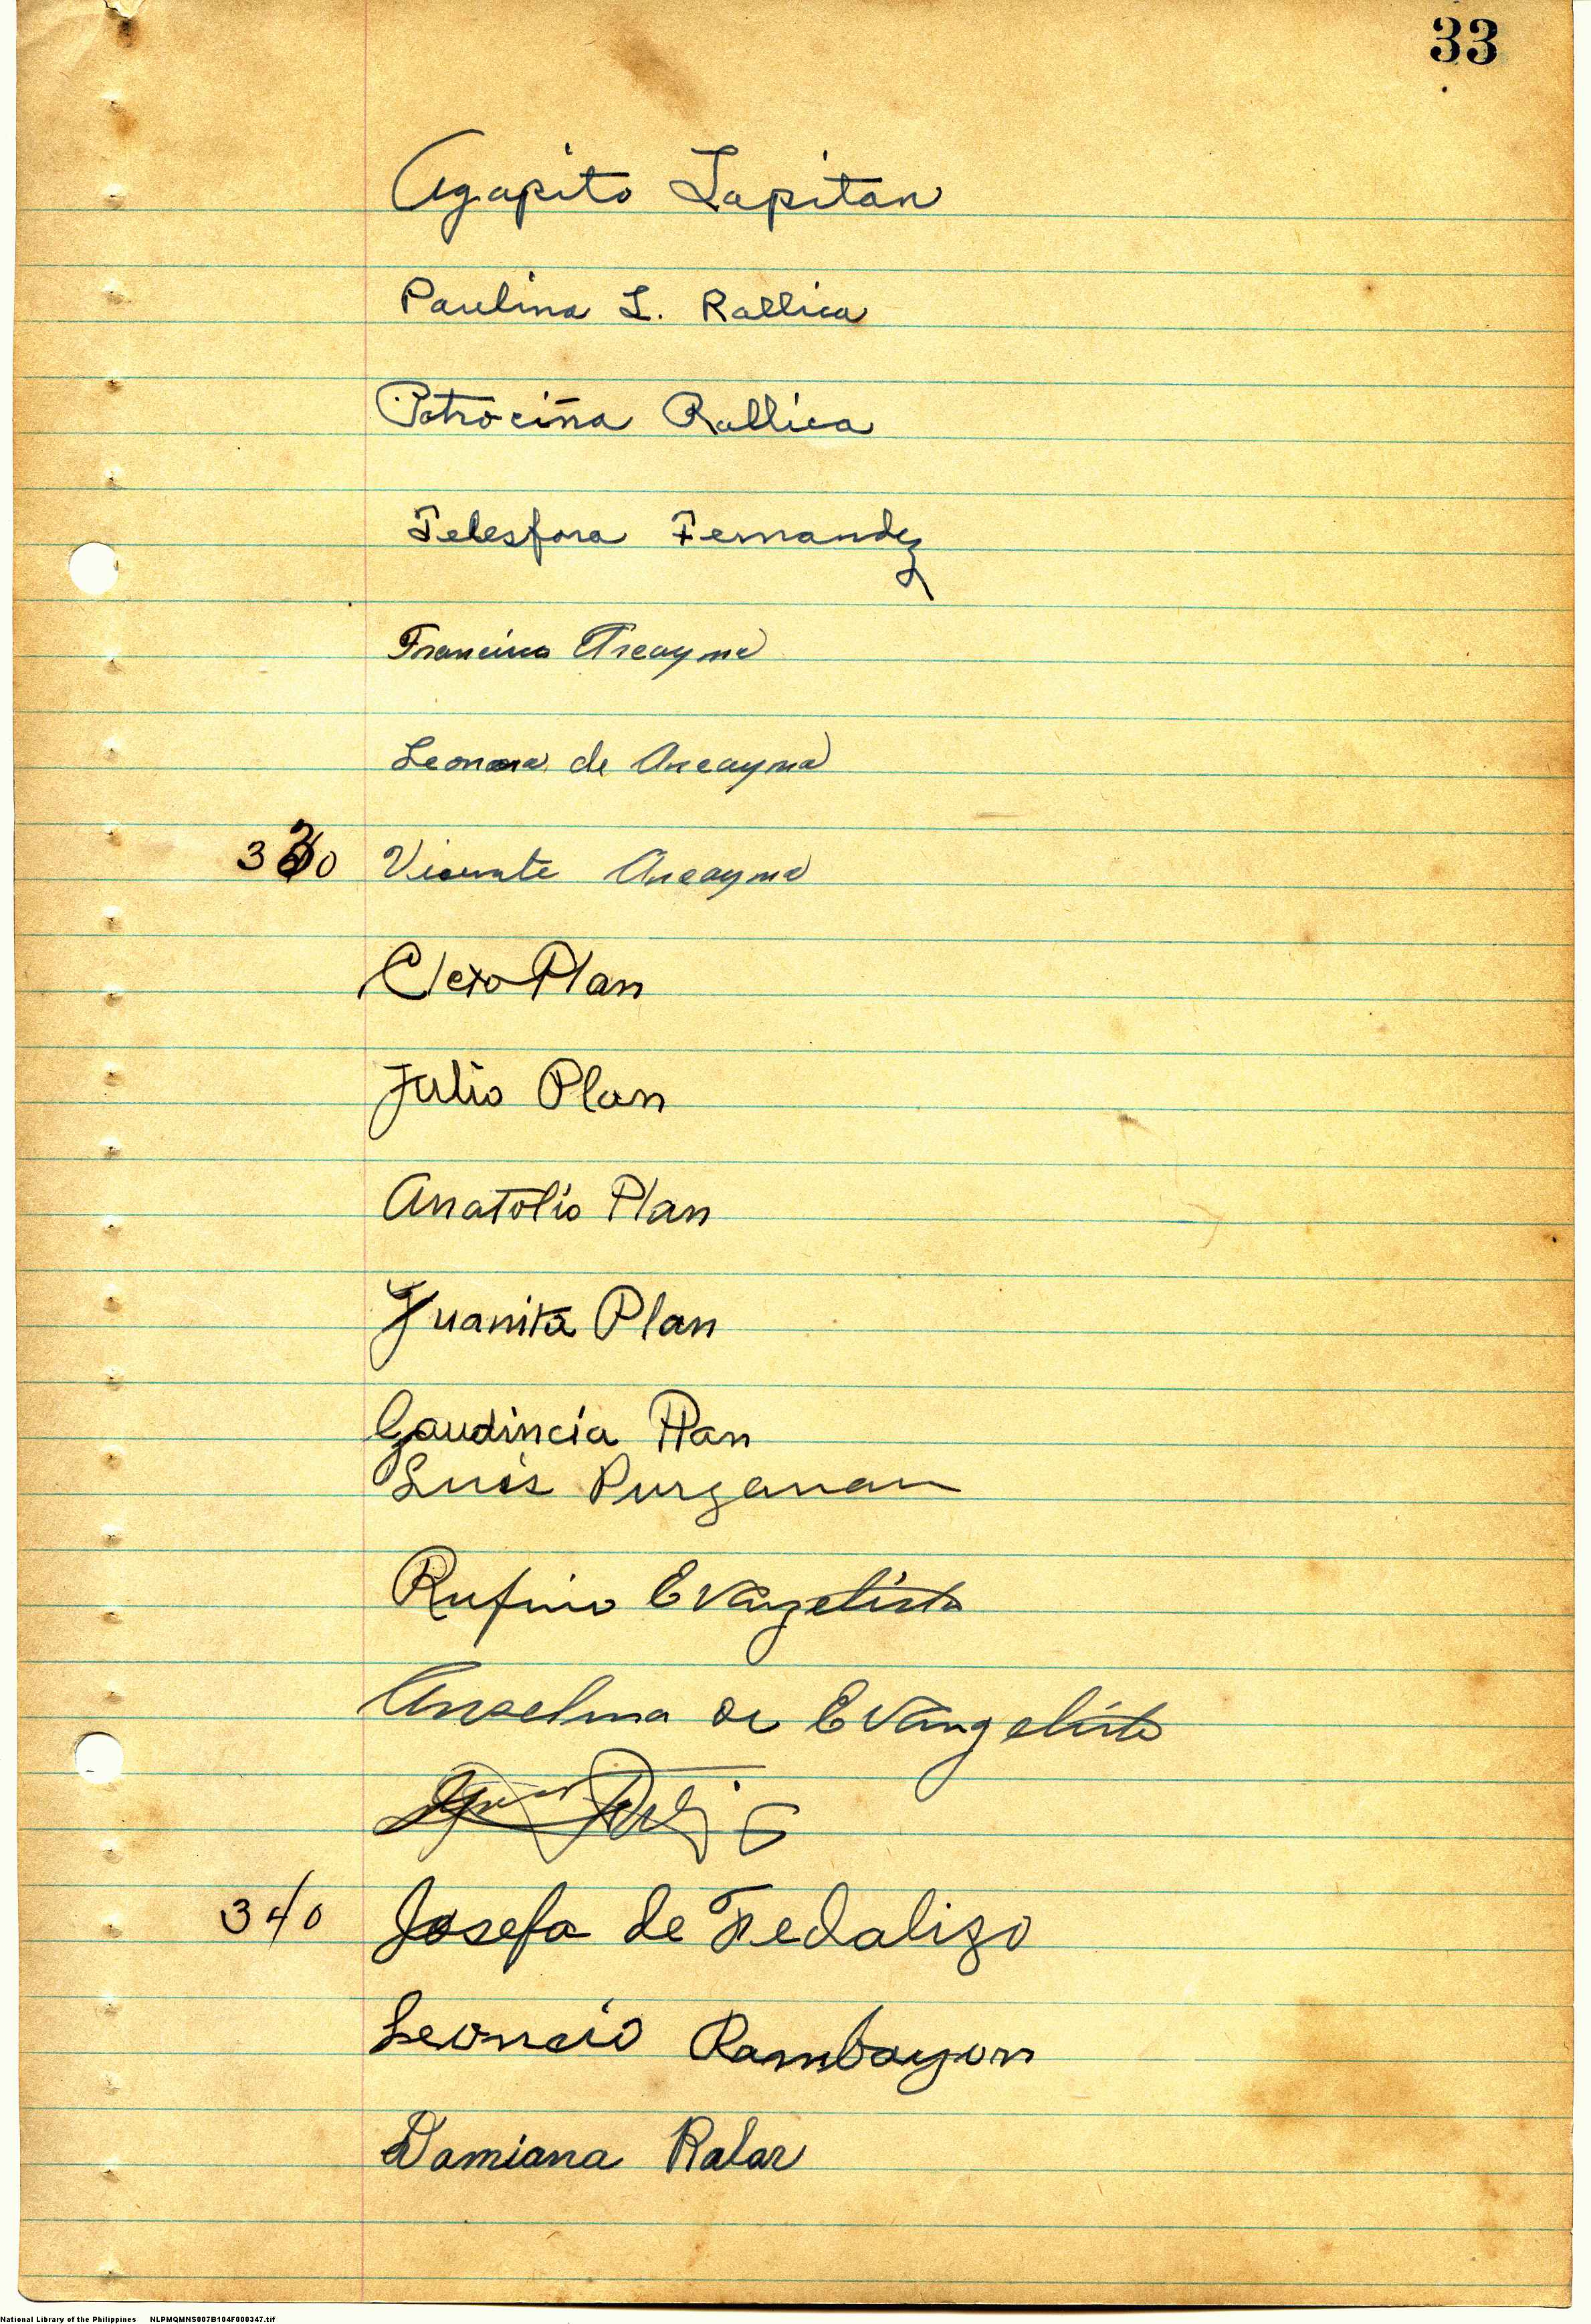 33
Agapito Lapitan
Paulina L. Rallica
Patrociña Rallica
Telesfora Fernandez
Francisco Arcayma
Leonora de Arcayma
330 Vicente Arcayma
Cleto Plan
Julio Plan
Anatolio Plan
Juanita Plan
Gaudincia Plan
Luis Purganan
Rufino Evangelista
Anselma de Evangelista
340 Josefa de Fedalizo
Leoncio Rambayon
Damiana Ralar
National Library of the Philippines NLPMQMNS007B104F000347.tif